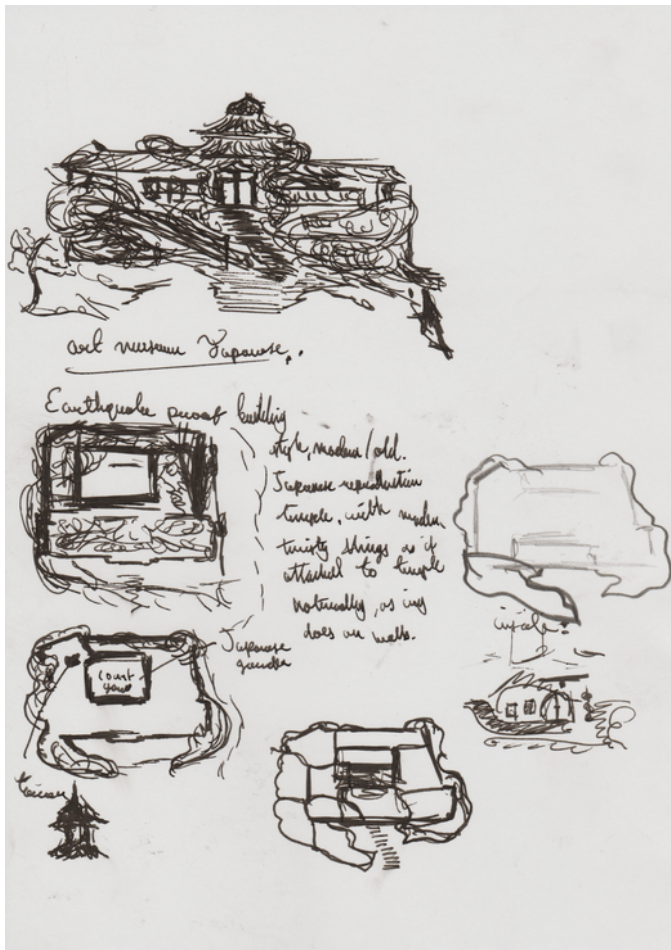 art museum Japanese.
Earthquake proof building
style, modern / old.
Japanese reproduction
temple, with modern
twisty things as if
attached to temple
naturally, as ivy
does on walls.
Japanese
garden
Court
yard
inside?